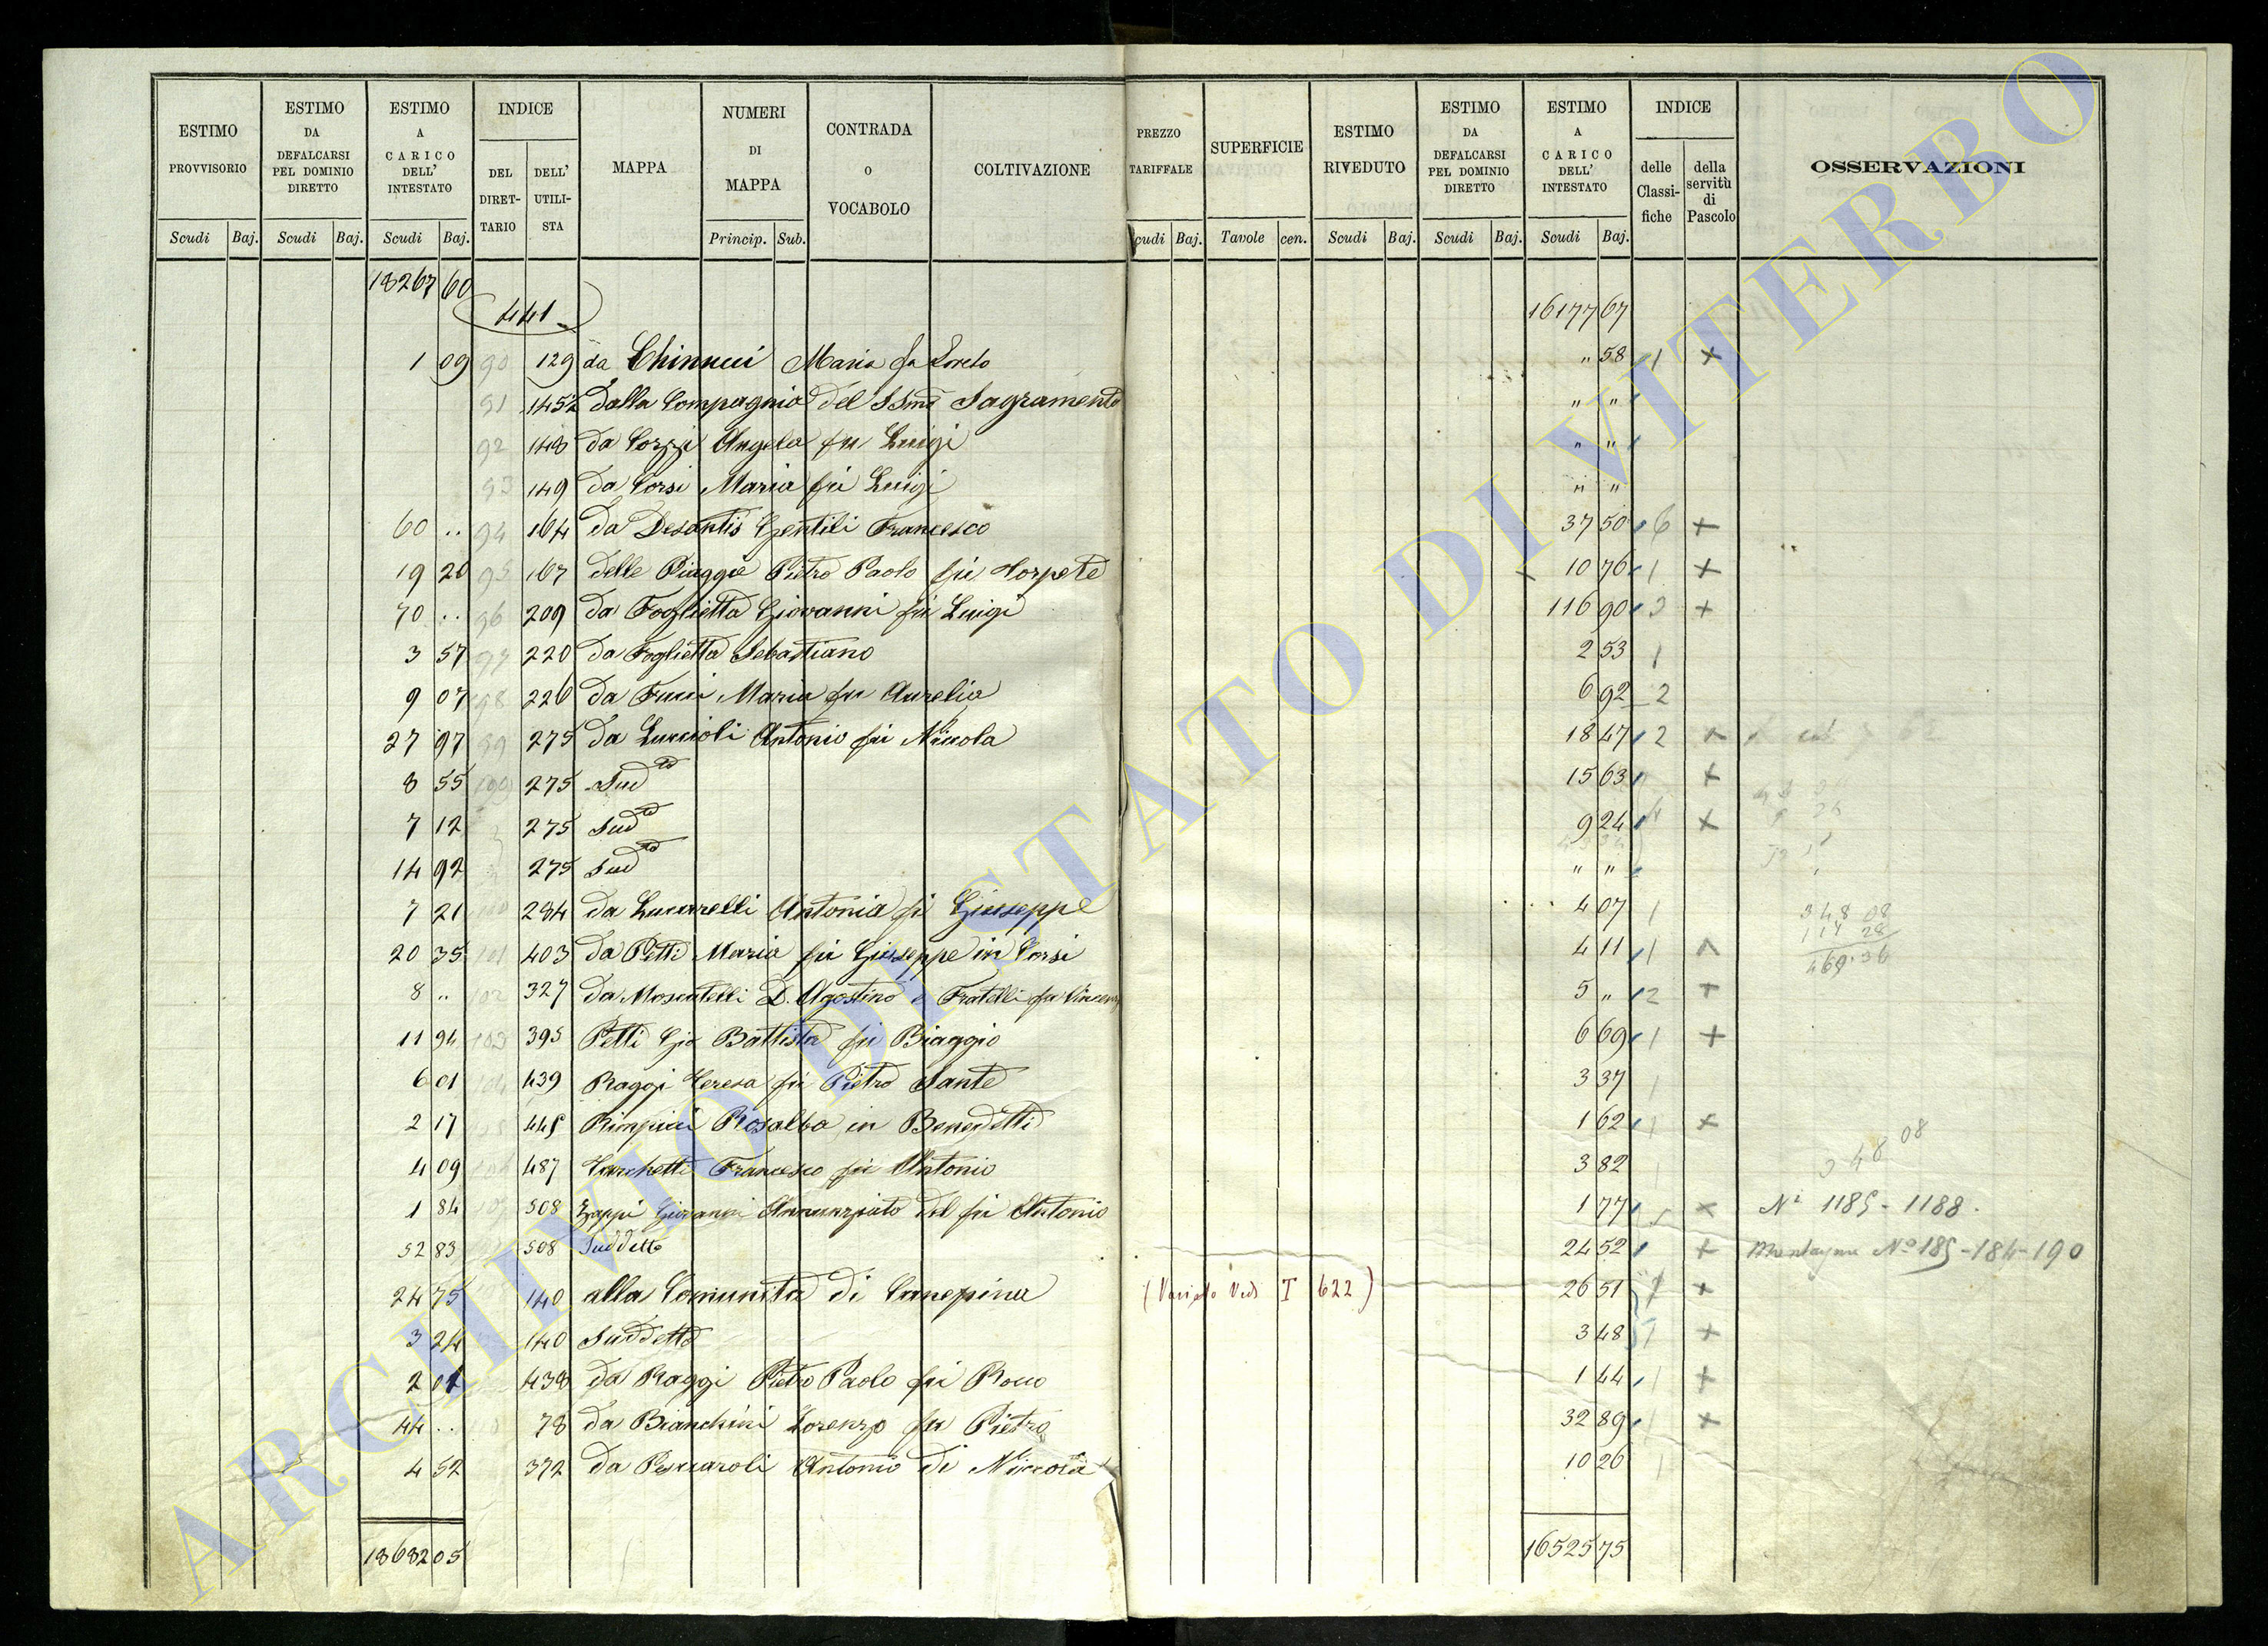 ESTIMO PROVVISORIO
ESTIMO DA DEFALCARSI PEL DOMINIO DIRETTO
ESTIMO A CARICO DELL' INTESTATO
INDICE
DEL DIRET-TARIO
DELL' UTILI-STA
MAPPA
NUMERI DI MAPPA
CONTRADA o VOCABOLO
COLTIVAZIONE
PREZZO TARIFFALE
SUPERFICIE
ESTIMO RIVEDUTO
ESTIMO DA DEFALCARSI PEL DOMINIO DIRETTO
ESTIMO A CARICO DELL' INTESTATO
INDICE
delle Classi-fiche
della servitù di Pascolo
OSSERVAZIONI
Scudi Baj. Scudi Baj. Scudi Baj. Princip. Sub. cudi Baj. Tavole cen. Scudi Baj. Scudi Baj. Scudi Baj.
18267 60 441 16177 67
1 09 90 129 da Chinucci Maria fu Loreto " 58 1 +
91 145½ Dalla Compagnia del SSmo Sagramento " "
92 148 da Corsi Angela fu Luigi " "
93 149 da Corsi Maria fu Luigi " "
60 .. 94 164 da Desantis Gentili Francesco 37 50 6 +
19 20 95 167 delle Piaggie Pietro Paolo fu 10 76 1 +
70 .. 96 209 da Foglietta Giovanni fu Luigi 116 90 3 +
3 57 97 220 da Foglietta Sebastiano 2 53 1
9 07 98 226 da Fucci Maria fu Aurelio 6 92 2
27 97 99 275 da Luccioli Antonio fu Niccola 18 47 2
8 55 275 Sudto 15 63 +
7 12 275 Sudto 9 24 +
14 92 275 Sudto " "
7 21 100 284 da Lucarelli Antonia fu Giuseppe 4 07 1
348 08
117 28
469.36
20 35 101 403 da Petti Maria fu Giuseppe in Corsi 4 11 1
8 .. 102 327 da Moscatelli D. Agostino e Fratelli fu Vincenzo 5 " 2 +
11 94 103 395 Petti Gio Battista fu Biaggio 6 69 1 +
6 01 104 439 Raggi Teresa fu Pietro Sante 3 37 1
2 17 105 445 Rimpicci Rosalba in Benedetti 1 62 1 +
348 08
4 09 106 487 Francesco fu Antonio 3 82
1 84 107 508 Zappi Giovanni Annunziato del fu Antonio 1 77 × Ni 1185 - 1188.
52 83 508 Suddetto 24 52 + Montagna No 185-184-190
24 75 140 alla Comunità di Canepina (Variato Vedi T 622) 26 51 +
3 24 140 Suddetta 3 48 +
2 01 438 da Raggi Pietro Paolo fu Rocco 1 44 1 +
44 .. 78 da Bianchini Lorenzo fu Pietro 32 89 1 +
4 52 372 da Pesciaroli Antonio di Niccola 10 26 1
18682 05 16525 75
ARCHIVIO DI STATO DI VITERBO